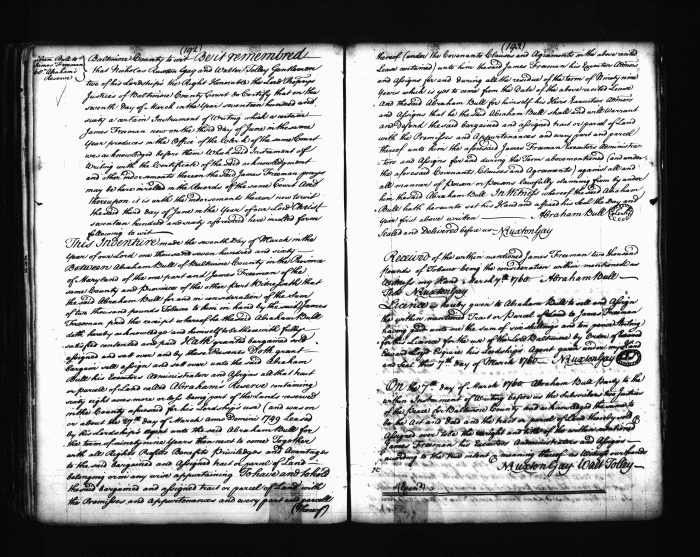 (192)
from Bull to
James Freeman
Ass. Abraham's
Reserve
Baltimore County to wit Be it remembred
that Nicholas Ruxton Gay and Walter Tolley Gentlemen
two of his Lordships the Right Honorable the Lord Proprys
Justices of Baltimore County do Certify that on the
seventh day of March in the Year seventeen hundred and
sixty a certain Instrument of Writing which a certain
James Freeman now on the third day of June in the same
Year produces in the Office of the Clerk of the same Court
was acknowledged before them Which said Instrument of
Writing with the Certificate of the said acknowledgment
and other indorsments thereon the said James Freeman prays
may be here inrolled in the Records of the same Court And
thereupon it is with the indorsements thereon now to wit
the said third day of June in the Year of our Lord Christ
seventeen hundred and sixty aforesaid here inrolled form
following to wit
This Indenture made the seventh day of March in the
Year of our Lord one thousand seven hundred and sixty
Between Abraham Bull of Baltimore County in the Province
of Maryland of the one part and James Freeman of the
same County and Province of the other part Witnesseth that
the said Abraham Bull for and in consideration of the sum
of two thousand pounds Tobacco to him in hand by the said James
Freeman paid the receipt whereof he the said Abraham Bull
doth hereby acknowledge and himself to be therewith fully
satisfied contented and paid Hath granted bargained and
assigned and sett over and by these Presents Doth grant
bargain sell assign and sett over unto the said
Bull his Executors Administrators and Assigns all that tract
or parcell of Land called Abraham's Reserve containing
eighty eight acres more or less being part of the Lands reserved
in the County aforesaid for his Lordships use (and was on
or about the day of March anno Domini 1749 Leased
by his Lordships Agent unto the said Abraham Bull for
the term of ninety nine Years then next to come Together
with all Rights Profits Benefits Priviledges and Advantages
to the said bargained and Assigned tract or parcel of Land
belonging or in any wise appertaining To have and to hold
the said bargained and assigned tract or parcel of Land with
the Premises and Appurtenances and every part and parcell
(thereof)
(192)
thereof (under the Covenants Clauses and Agreements in the above recited
Lease contained) unto him the said James Freeman his Executors Admrs
and Assigns for and during all the residue of the term of Ninety nine
Years which is yet to come from the Date of the above recited Lease
And the said Abraham Bull for himself his Heirs Executors Admors
and Assigns that he the said Abraham Bull shall and will Warrant
and Defend the said bargained and assigned tract or parcel of Land
with the Premises and Appurtenances and every part and parcel
thereof unto him the aforesaid James Freeman Executors Administra-
tors and Assigns for and during the Term abovementioned (and under
the aforesaid Covenants Clauses and Agreements) against all and
all manner of Person or Persons Lawfully claiming from by or under
him the said Abraham Bull In Witness whereof the said Abraham
Bull hath hereunto set his Hand and affixed his Seal the Day and
Year first above written Abraham Bull
Sealed and Delivered before us N Ruxton Gay
Received of the within mentioned James Freeman two thousand
pounds of Tobacco being the consideration within mentioned
Witness my Hand March 7th 1760 Abraham Bull
Teste N Ruxton Gay
Licence is hereby given to Abraham Bull to sell and Assign
the within mentioned Tract or Parcel of Land to James Freeman
having paid unto me the sum of six shillings and ten pence sterling
for this Licence for the use of the Lord Baltimore by Order of
Edward Lloyd Esquire his Lordships Agent given under my Hand
and Seal this 7th day of March 1760 N Ruxton Gay
On the 7th day of March 1760 Abraham Bull Party to the
within Instrument of Writing before us the Subscribers two Justices
of the Peace for Baltimore County and acknowledged the same
to be his Act and Deed and the tract or parcel of Land thereby
Assigned over to be the right of the within mentioned
James Freeman his Executors Administrators and Assigns
according to the true intent & meaning thereof as Witness our hands
N Ruxton Gay Walt Tolley